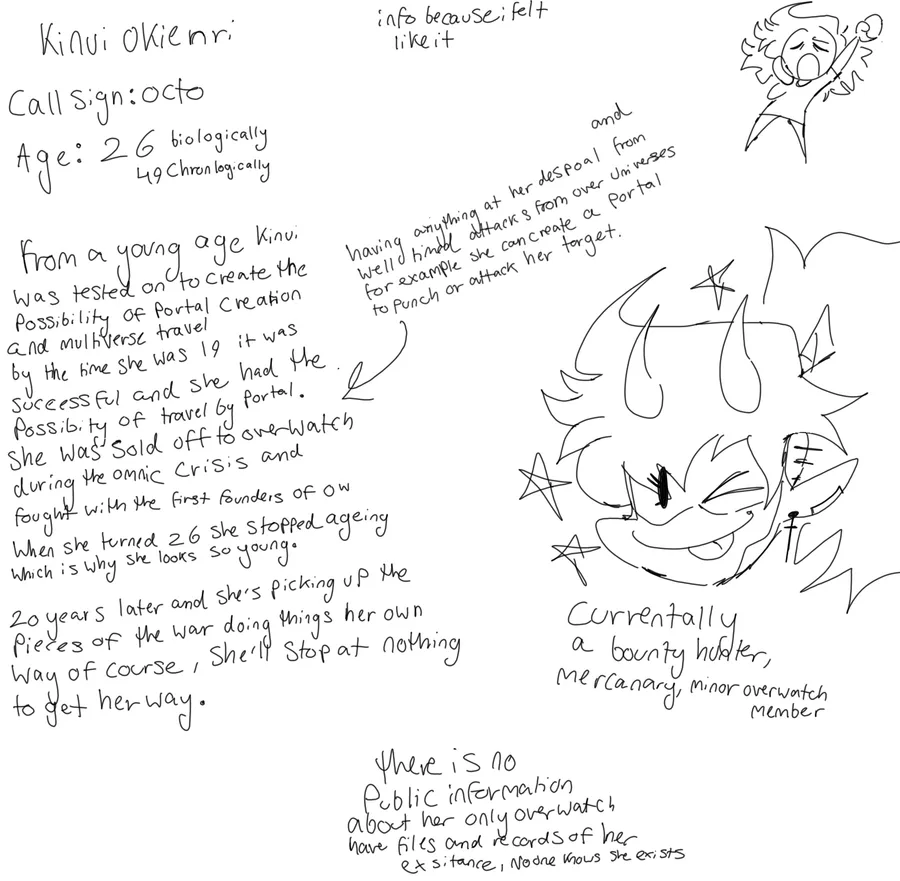 Kinui Okienri
info because i felt
like it
Call sign: octo
Age: 26 biologically
49 Chronlogically
From a young age Kinui
was tested on to create the
Possibility of Portal Creation
and multiverse travel
by the time she was 19 it was
successful and she had the
Possibity of travel by Portal.
she was sold off to overwatch
during the omnic Crisis and
fought with the first founders of OW
When she turned 26 she stopped ageing
which is why she looks so young.
20 years later and she's picking up the
Pieces of the war doing things her own
way of course, she'll stop at nothing
to get her way.
and
having anything at her despoal from
well timed attacks from over universes
for example she can create a portal
to punch or attack her target.
Currentally
a bounty hunter,
Mercanary, minor overwatch
member
there is no
Public information
about her only overwatch
have files and records of her
exsitance, No one knows she exists